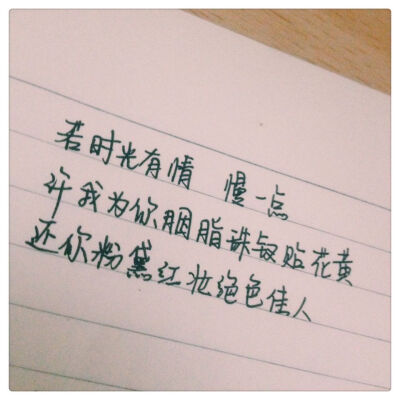 若时光有情 慢一点
许我为你胭脂珠钗贴花黄
还你粉黛红妆绝色佳人